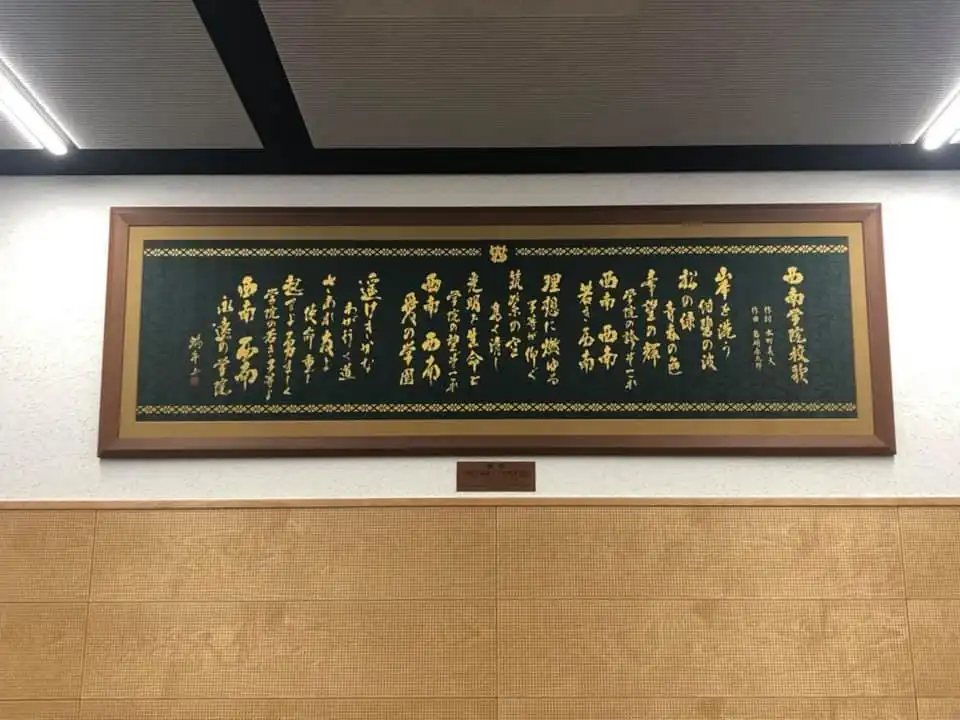 西南学院校歌
作詞 水町義夫
作曲 島崎赤太郎
岸を洗う
の波
松の緑
青春の色
希望の輝
学院の誇ぞ これ
西南 西南
若き西南
理想に燃ゆる
等が仰ぐ
筑紫の空
高く清し
光明と生命と
学院の望ぞ これ
西南 西南
愛の学園
遥けきかな
わが行く道
さあれ友よ
使命重し
起てよ勇ましく
学院の若き子等よ
西南 西南
永遠の学院